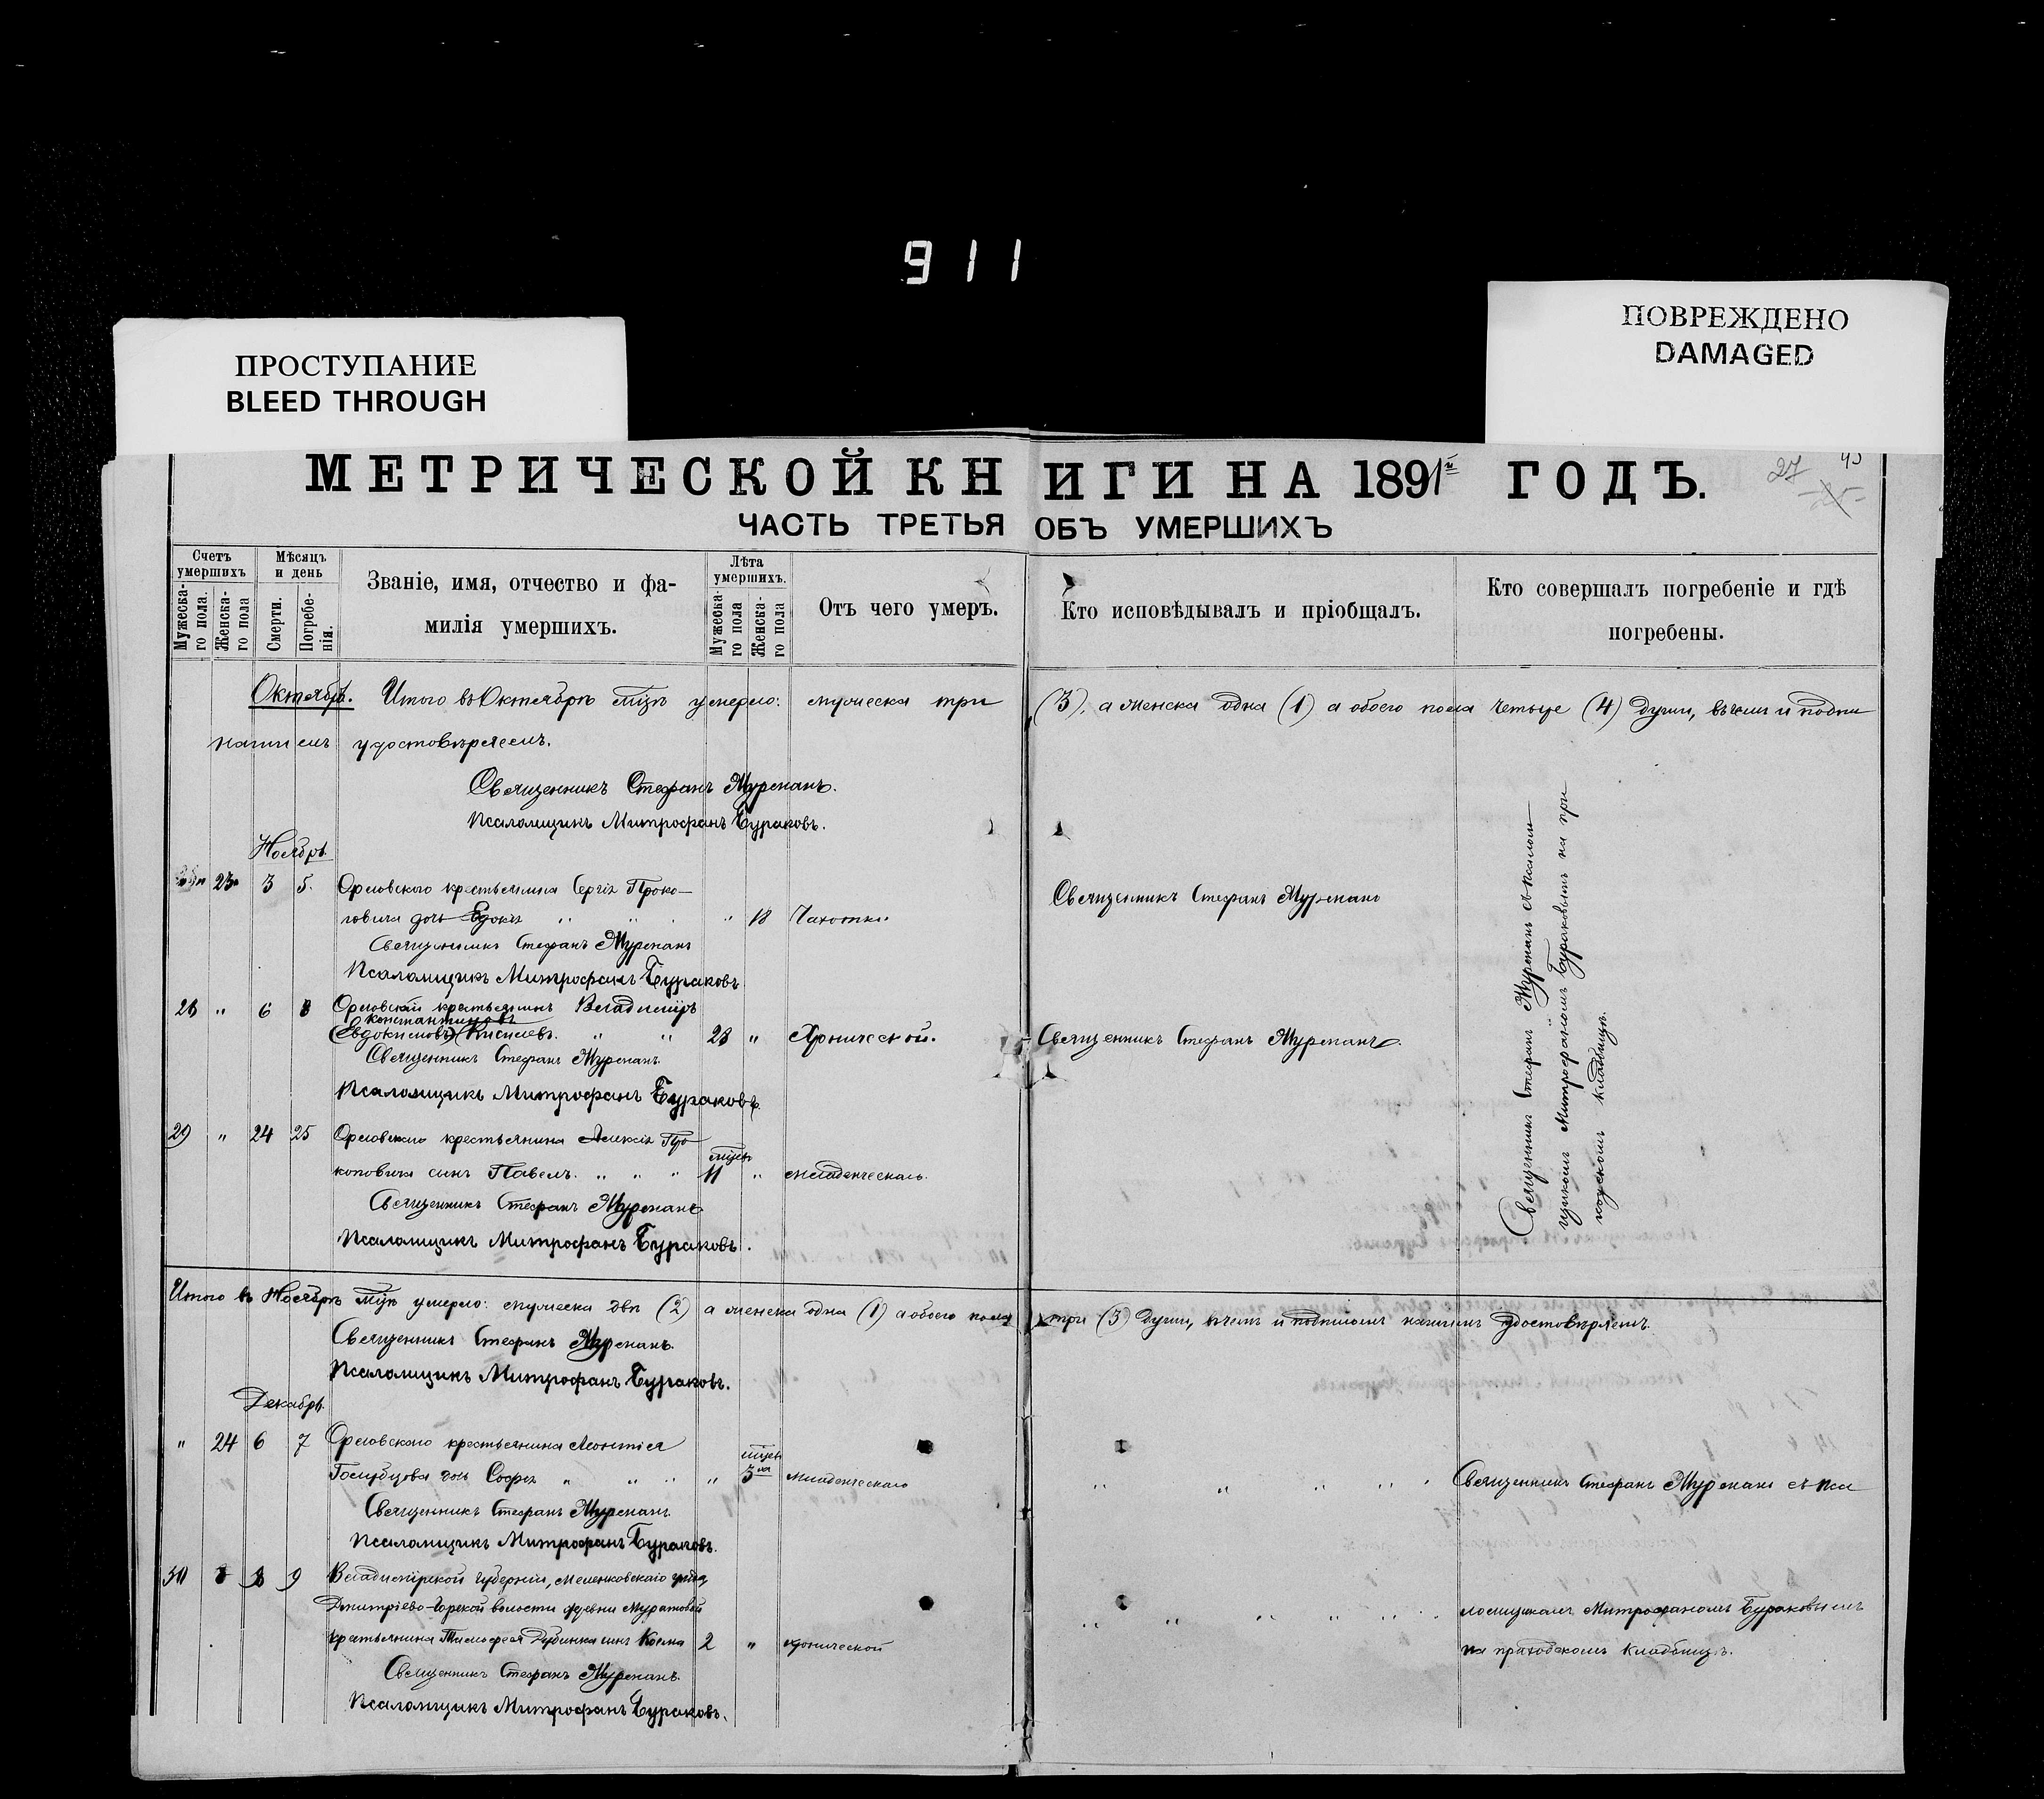 911
ПРОСТУПАНИЕ
BLEED THROUGH
ПОВРЕЖДЕНО
DAMAGED
МЕТРИЧЕСКОЙ КНИГИ НА 1891й ГОДЪ.
27
ЧАСТЬ ТРЕТЬЯ ОБЪ УМЕРШИХЪ
Счетъ умершихъ
Мужеска-го пола.
Женска-го пола
Мѣсяцъ и день
Смерти.
Погребе-нія.
Званіе, имя, отчество и фа-
милія умершихъ.
Лѣта умершихъ.
Мужеска-го пола
Женска-го пола
Отъ чего умеръ.
Кто исповѣдывалъ и пріобщалъ.
Кто совершалъ погребеніе и гдѣ
погребены.
Октябрь. Итого въ Октябрѣ мцѣ умерло: мужеска три (3), а женска одна (1) а обоего пола четыре (4) души, въ чемъ и подпи
нашимъ удостовѣряемъ.
Священникъ Стефанъ Журманъ.
Псаломщикъ Митрофанъ Бураковъ.
Ноябрь
23 3 5. Орловского крестьянина Сергія Проко-
повича дочь Евдокія " " " 18 Чахотки Священникъ Стефанъ Журманъ
Священникъ Стефанъ Журманъ
Псаломщикъ Митрофанъ Бураковъ
28 " 6 8 Орловскій крестьянинъ Владиміръ
Константиновъ
(Евдокимовъ) Киселевъ. " " 28 " Хронической. Священникъ Стефанъ Журманъ.
Священникъ Стефанъ Журманъ
Псаломщикъ Митрофанъ Бураковъ.
29 " 24 25 Орловскаго крестьянина Алексія Про
коповича сынъ Павелъ. " " " мцев 11 " младенческаго.
Священникъ Стефанъ Журманъ
Псаломщикъ Митрофанъ Бураковъ.
Священникъ Стефанъ Журманъ съ псалом
щикомъ Митрофаномъ Бураковымъ на при
ходскомъ кладбищѣ.
Итого въ Ноябрѣ мцѣ умерло: мужеска двѣ (2) а женска одна (1) а обоего пола три (3) души, въ чемъ и подписомъ нашимъ удостовѣряемъ.
Священникъ Стефанъ Журманъ.
Псаломщикъ Митрофанъ Бураковъ.
Декабрь
" 24 6 7 Орловскаго крестьянина Леонтія
Голубцова дочь Софія " " " " 3 младенческаго " " " " Священникъ Стефанъ Журманъ съ пса
Священникъ Стефанъ Журманъ.
Псаломщикъ Митрофанъ Бураковъ.
30 8 9 Владимірской губерніи, Меленковскаго уѣзда
Дмитріево-Горской волости деревни Муратовой
ломщикомъ Митрофаномъ Бураковымъ
крестьянина Тимофея Дубинка сынъ Косма 2 " хронической
на приходскомъ кладбищѣ.
Священникъ Стефанъ Журманъ.
Псаломщикъ Митрофанъ Бураковъ.